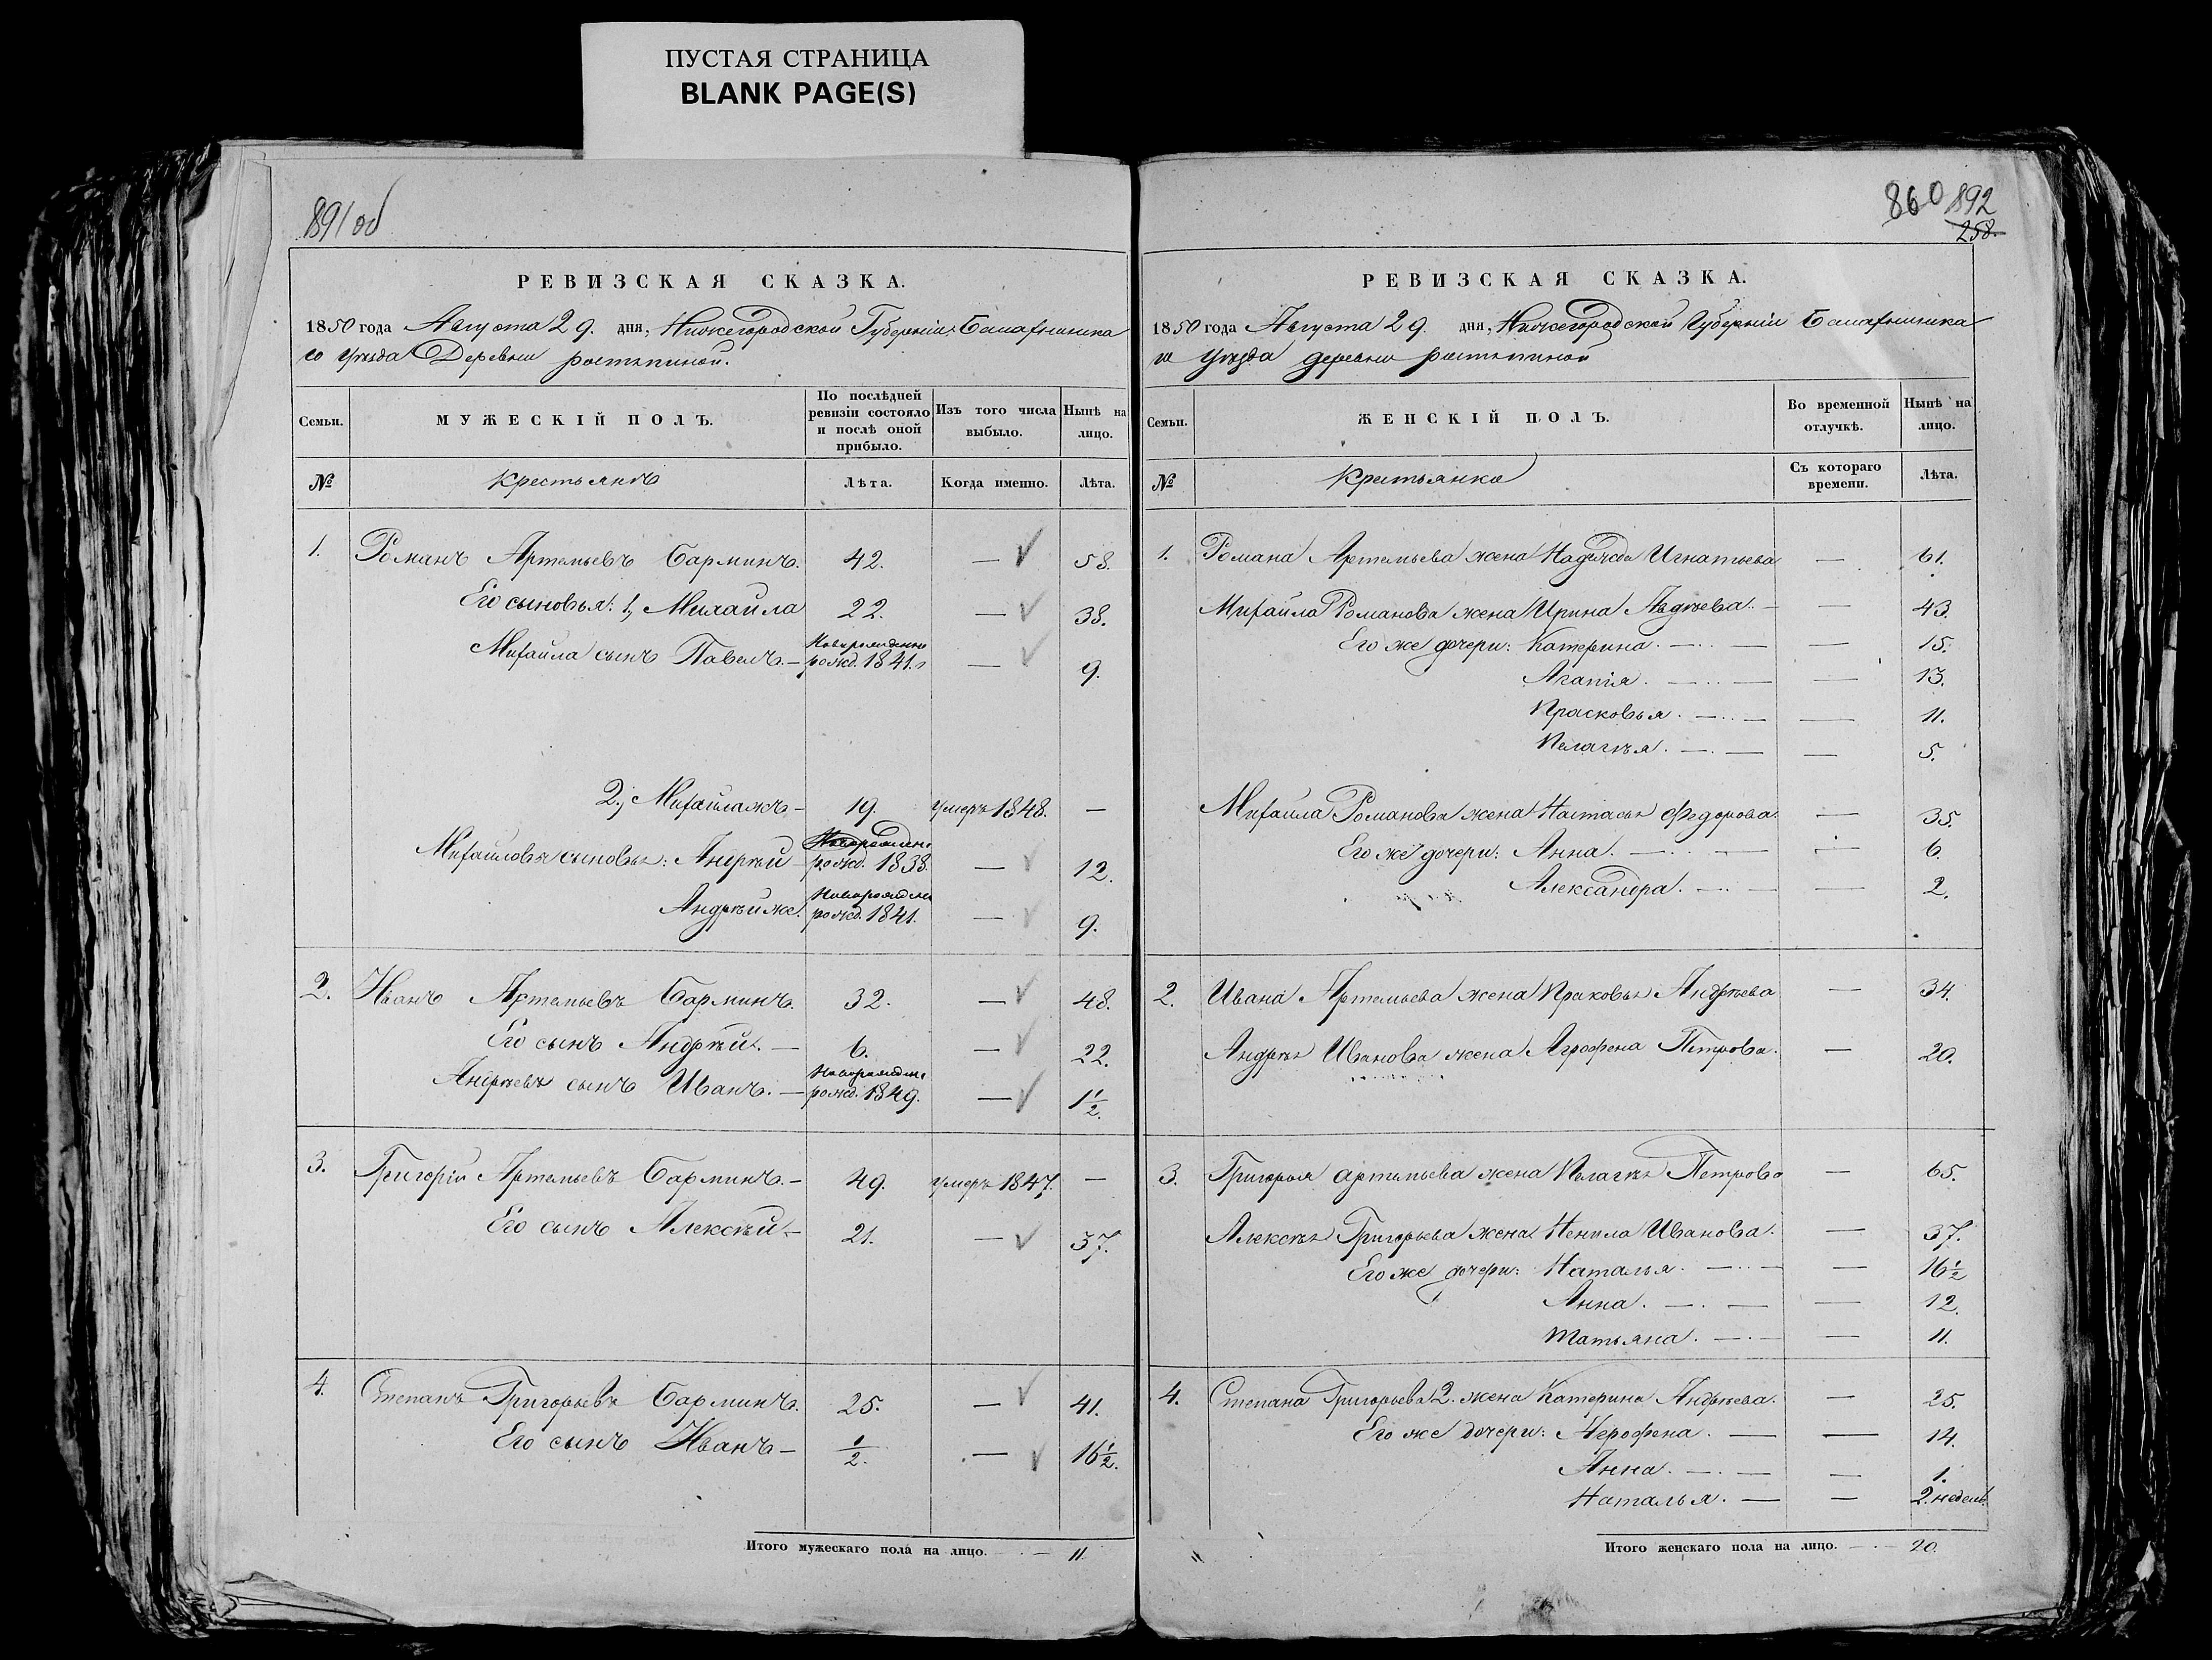 ПУСТАЯ СТРАНИЦА
BLANK PAGE(S)
891об
РЕВИЗСКАЯ СКАЗКА.
1850 года Августа 29. дня, Нижегородской Губерніи, Балахнинска
го уѣзда Деревни
Семьи.
МУЖЕСКІЙ ПОЛЪ.
По послѣдней ревизіи состояло и послѣ оной прибыло.
Изъ того числа выбыло.
Нынѣ на лицо.
№
Крестьянъ
Лѣта.
Когда именно.
Лѣта.
1. Романъ Артемьевъ Барминъ. 42. — 58.
Его сыновья: 1, Михайла 22. — 38.
Михайла сынъ Павелъ. — рожд. 1841. — 9.
2, Михайлажъ — 19. умеръ 1848. —
Михайловы сыновья: Андрѣй рожд. 1838. — 12.
Андрѣй же. рожд. 1841. — 9.
2. Иванъ Артемьевъ Барминъ. 32. — 48.
Его сынъ Андрѣй. — 6. — 22.
Андрѣевъ сынъ Иванъ. — рожд. 1849. — 1 1/2.
3. Григорій Артемьевъ Барминъ. — 49. умеръ 1847. —
Его сынъ Алексѣй — 21. — 37.
4. Степанъ Григорьевъ Барминъ. 25. — 41.
Его сынъ Иванъ — 1/2. — 16 1/2.
Итого мужескаго пола на лицо. — 11.
860 892
258.
РЕВИЗСКАЯ СКАЗКА.
1850 года Августа 29. дня, Нижегородской Губерніи Балахнинска
го уѣзда деревни
Семьи.
ЖЕНСКІЙ ПОЛЪ.
Во временной отлучкѣ.
Нынѣ на лицо.
№
Крестьянка
Съ котораго времени.
Лѣта.
1. Романа Артемьева жена Надежда Игнатьева — 61.
Михайла Романова жена Ирина Авдѣева. — — 43.
Его же дочери: Катерина. — — — 15.
Агапія. — — — 13.
Прасковья. — — — 11.
Пелагѣя. — — — 5.
Михайла Романова жена Настасья Федорова. — 35.
Его же дочери: Анна. — — — 6.
Александра. — — — 2.
2. Ивана Артемьева жена Праковья Андрѣева — 34.
Андрѣя Иванова жена Агрофена Петрова. — 20.
3. Григорья артемьева жена Пелагѣя Петрова — 65.
Алексѣя Григорьева жена Ненила Иванова. — 37.
Его же дочери: Наталья. — — — 16 1/2
Анна. — — — 12.
Татьяна. — — — 11.
4. Степана Григорьева 2. жена Катерина Андрѣева. — 25.
Его же дочери: Агрофена. — — 14.
Анна. — — — 1.
Наталья. — — 2. недели.
Итого женскаго пола на лицо. — — 20.